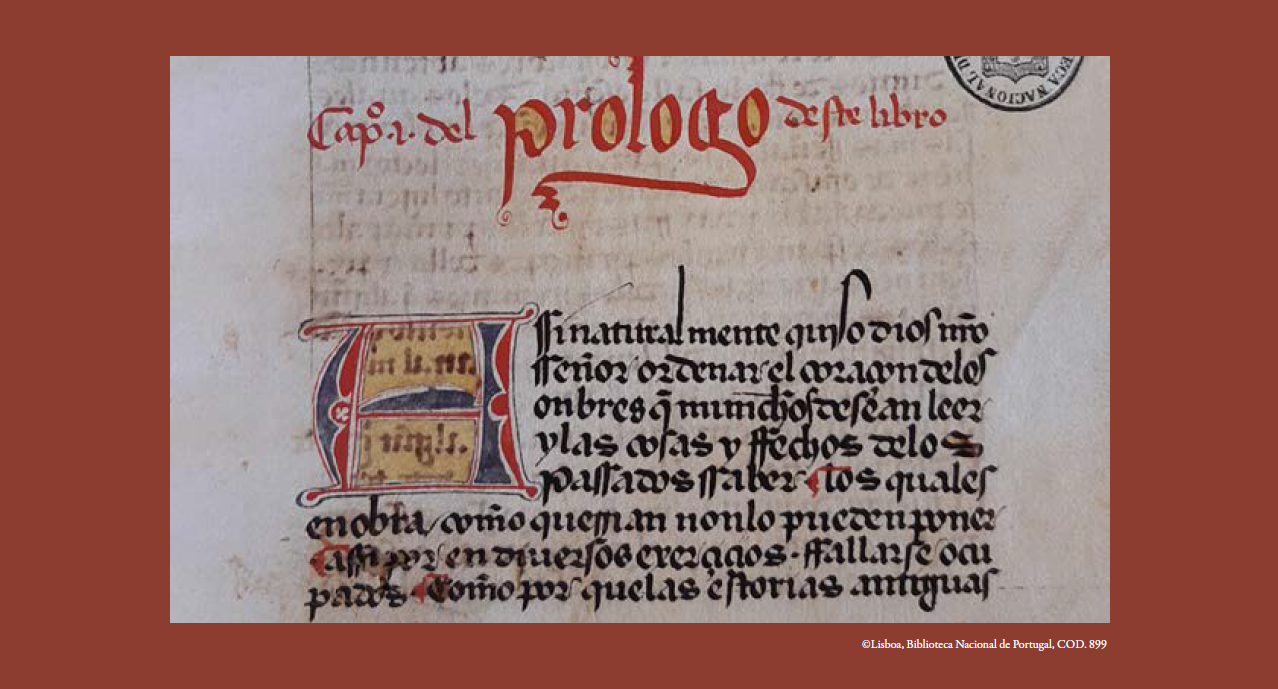 Capº .i. del prologo deste libro
Assi natural mente quiso dios nr̃o
sseñor ordenar el coraçon delos
onbres q̃ munchos desean leer
y las cosas y ffechos delos
passados ssaber los quales
en obra com̃o querrian non lo pueden poner
assi por en diuersos exerçiçios · ffallarse ocu
pados Com̃o por que las estorias antiguas
©Lisboa, Biblioteca Nacional de Portugal, COD. 899